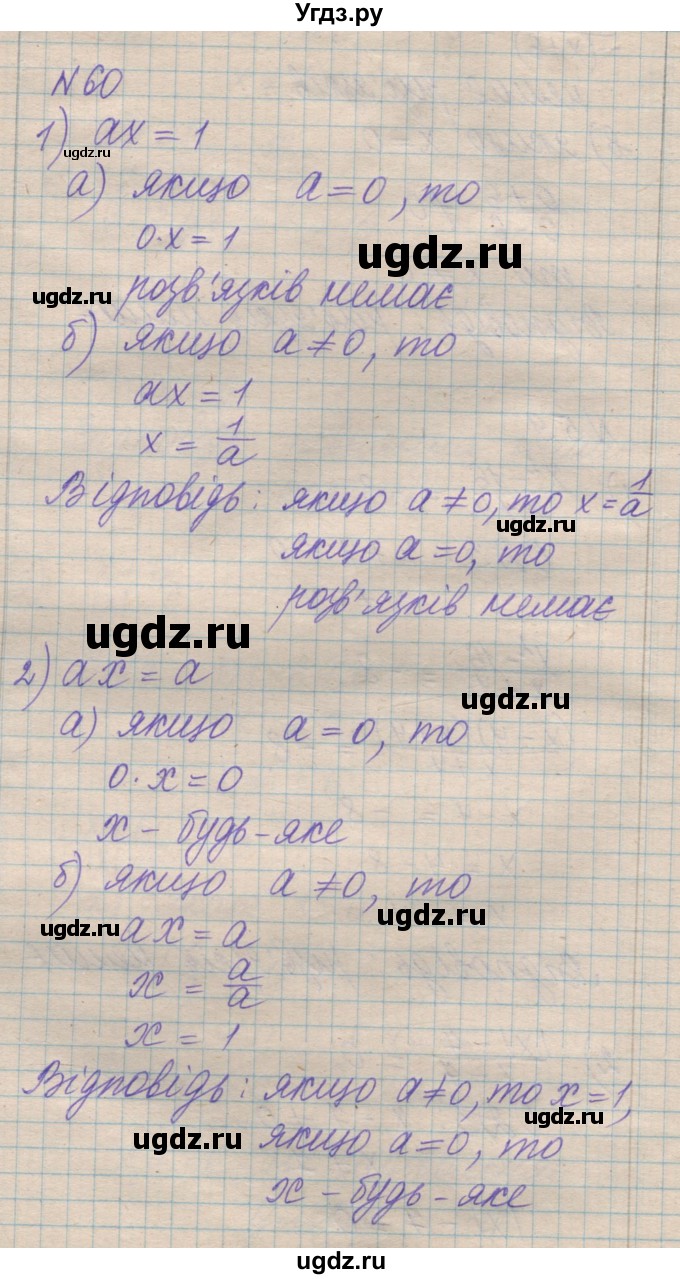 Угдз.ру
N 60
1) ax = 1
ugdz.ru
а) якщо a = 0, то
0·x = 1
ugdz.ru
ugdz.ru
розв'язків немає
б) якщо a ≠ 0, то
ax = 1
x = 1/a
Відповідь: якщо a ≠ 0, то x = 1/a
ugdz.ru
якщо a = 0, то
розв'язків немає
ugdz.ru
2) ax = a
ugdz.ru
а) якщо a = 0, то
0·x = 0
x – будь-яке
б) якщо a ≠ 0, то
ugdz.ru
ugdz.ru
ax = a
x = a/a
x = 1
Відповідь: якщо a ≠ 0, то x = 1,
ugdz.ru
ugdz.ru
якщо a = 0, то
x – будь-яке
ugdz.ru